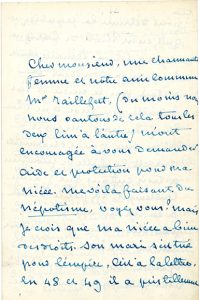 Cher monsieur, une charmante
femme et notre amie commune
Mme Raillefet, (du moins nous
nous vantons de cela tous les
deux l'un à l'autre) m'ont
encouragée à vous demander
aide et protection pour ma
nièce. me voilà faisant du
népotisme, voyez vous! mais
je crois que ma nièce a bien
des droits. Son mari s'est tué
pour l'empire, c'est à la lettre.
en 48 et 49 il a